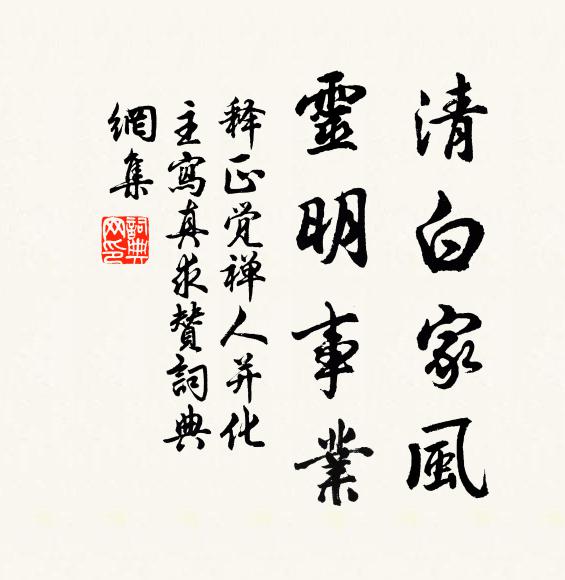 清白家風
靈明事業
释正觉禅人并化
主寫真求賛詞典
網集
詞典
网印